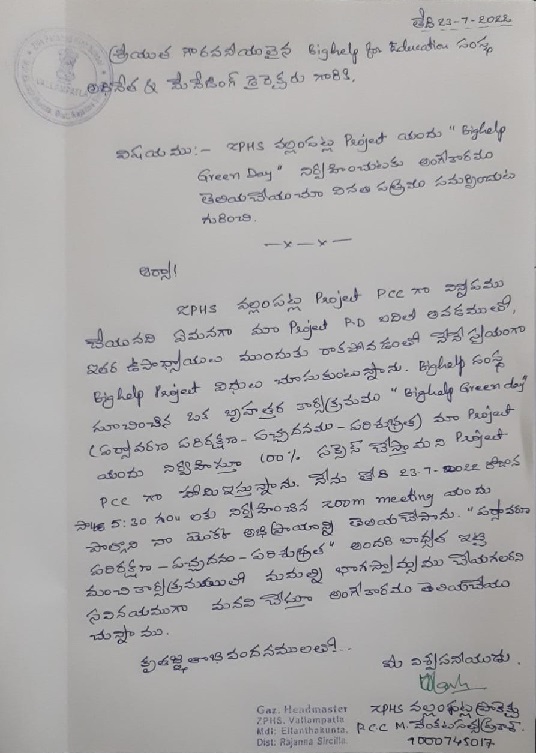 తేది 23-7-2022
శ్రీయుత గౌరవనీయులైన Bighelp for Education సంస్థ
అధినేత & మేనేజింగ్ డైరెక్టరు గారికి,
విషయము:- ZPHS వల్లంపట్ల Project యందు "Bighelp
Green Day" నిర్వహించుటకు అంగీకారము
తెలియచేయుచూ వినతి పత్రము సమర్పించుట
గురించి.
—x—x—
ఆర్యా!
ZPHS వల్లంపట్ల Project PCC గా విన్నపము
చేయునది ఏమనగా మా Project P.D బదిలీ అవడములో,
ఇతర ఉపాధ్యాయులు ముందుకు రాకపోవడంతో నేనే స్వయంగా
Bighelp Project విధులు చూసుకుంటున్నాను. Bighelp సంస్థ
సూచించిన ఒక బృహత్తర కార్యక్రమము "Bighelp Green day"
(పర్యావరణ పరిరక్షణ - పచ్చదనము - పరిశుభ్రత) మా Project
యందు నిర్వహిస్తూ 100% సక్సెస్ చేస్తామని Project
PCC గా హామీ ఇస్తున్నాను. నేను తేది 23-7-2022 రోజున
సా॥ 5:30 గం॥ లకు నిర్వహించిన zoom meeting యందు
పాల్గొని నా యొక్క అభిప్రాయాన్ని తెలియచేసాను. "పర్యావరణ
పరిరక్షణ - పచ్చదనం - పరిశుభ్రత" అందరి బాధ్యత ఇట్టి
మంచి కార్యక్రమములో మమల్ని భాగస్వామ్యము చేయగలరని
సవినయముగా మనవి చేస్తూ అంగీకారము తెలియచేయు
చున్నాము.
కృతజ్ఞతాభివందనములతో...
మీ విశ్వసనీయుడు.
Gaz. Headmaster
ZPHS. Vallampatla
Mdl: Ellanthakunta,
Dist: Rajanna Sircilla.
ZPHS వల్లంపట్ల ప్రాజెక్టు
P.C.C M. వేంకట
1000745017